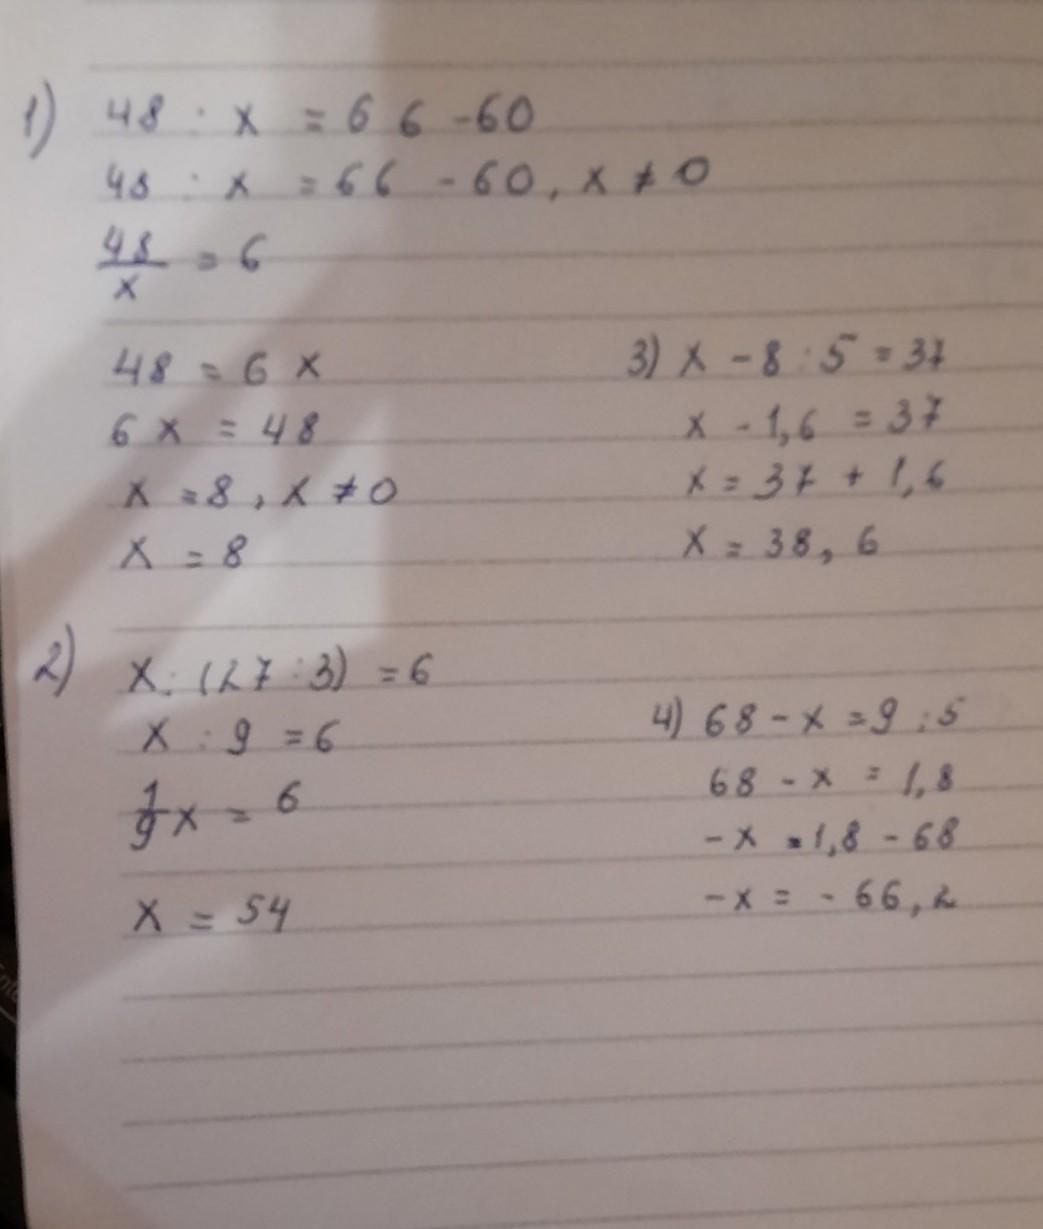 1) 48 : x = 66 - 60
48 : x = 66 - 60, x ≠ 0
48/x = 6
48 = 6x
6x = 48
x = 8, x ≠ 0
x = 8
2) x : (27 : 3) = 6
x : 9 = 6
1/9 x = 6
x = 54
3) x - 8 : 5 = 37
x - 1,6 = 37
x = 37 + 1,6
x = 38,6
4) 68 - x = 9 : 5
68 - x = 1,8
-x = 1,8 - 68
-x = -66,2